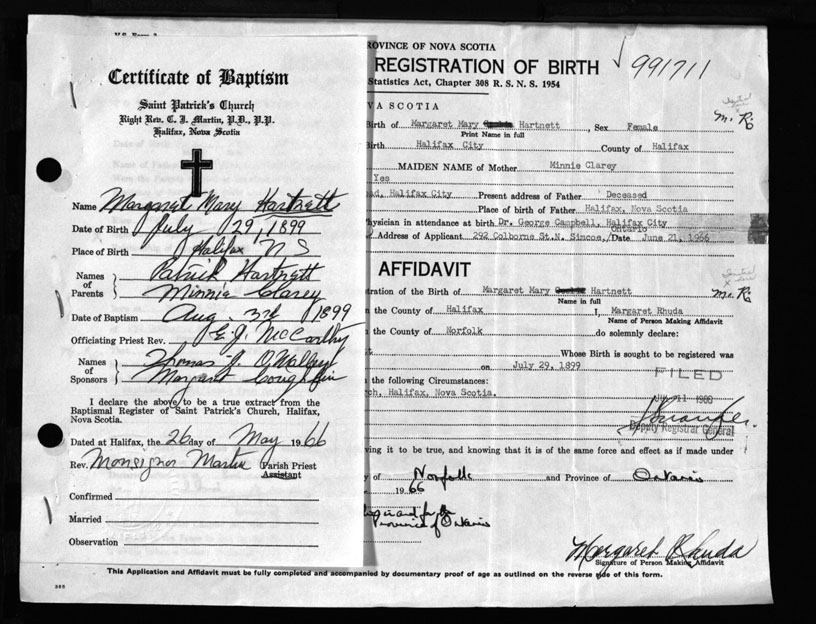 Certificate of Baptism
Saint Patrick's Church
Right Rev. C. J. Martin, P.D., P.P.
Halifax, Nova Scotia
Name Margaret Mary Hartnett
Date of Birth July 29, 1899
Place of Birth Halifax N S
Names of Parents
Patrick Hartnett
Minnie Clarey
Date of Baptism Aug. 3rd 1899
Officiating Priest Rev. E. J. McCarthy
Names of Sponsors
Thomas J. O'Malley
Margaret Coughlin
I declare the above to be a true extract from the
Baptismal Register of Saint Patrick's Church, Halifax,
Nova Scotia.
Dated at Halifax, the 26 day of May 1966
Rev. Monsignor Martin Parish Priest
Assistant
Confirmed
Married
Observation
PROVINCE OF NOVA SCOTIA
REGISTRATION OF BIRTH 991711
Statistics Act, Chapter 308 R. S. N. S. 1954
NOVA SCOTIA
Birth of Margaret Mary Hartnett, Sex Female
Print Name in full
Birth Halifax City County of Halifax
MAIDEN NAME of Mother Minnie Clarey
Yes
ad, Halifax City Present address of Father Deceased
Place of birth of Father Halifax, Nova Scotia
Physician in attendance at birth Dr. George Campbell, Halifax City
Ontario
Address of Applicant 292 Colborne St.N. Simcoe, Date June 21, 1966
M. R.
AFFIDAVIT
tration of the Birth of Margaret Mary Hartnett M. R.
Name in full
n the County of Halifax I, Margaret Rhuda
Name of Person Making Affidavit
n the County of Norfolk do solemnly declare:
Whose Birth is sought to be registered was
on July 29, 1899
the following Circumstances:
FILED
ch, Halifax, Nova Scotia.
Deputy Registrar General
ving it to be true, and knowing that it is of the same force and effect as if made under
y of Norfolk and Province of Ontario
1966
Province of Ontario
Margaret Rhuda
Signature of Person Making Affidavit
This Application and Affidavit must be fully completed and accompanied by documentary proof of age as outlined on the reverse side of this form.